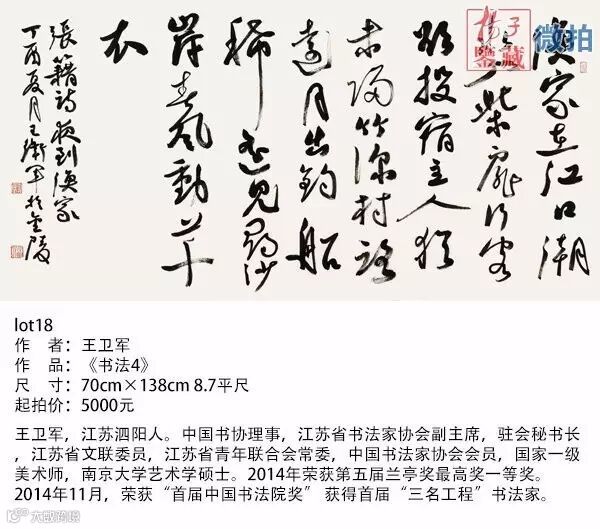 漁家在江口潮
柴扉行客
欲投宿主人猶
未歸竹深村路
遠月出釣船
稀遙見尋沙
岸春風動草
衣
張籍詩夜到漁家
丁酉夏月王衛軍於金陵
揚子
鑒藏
微拍
lot18
作 者：王卫军
作 品：《书法4》
尺 寸：70cm×138cm 8.7平尺
起拍价：5000元
王卫军，江苏泗阳人。中国书协理事，江苏省书法家协会副主席，驻会秘书长
，江苏省文联委员，江苏省青年联合会常委，中国书法家协会会员，国家一级
美术师，南京大学艺术学硕士。2014年荣获第五届兰亭奖最高奖一等奖。
2014年11月，荣获“首届中国书法院奖” 获得首届“三名工程”书法家。
大数跨境